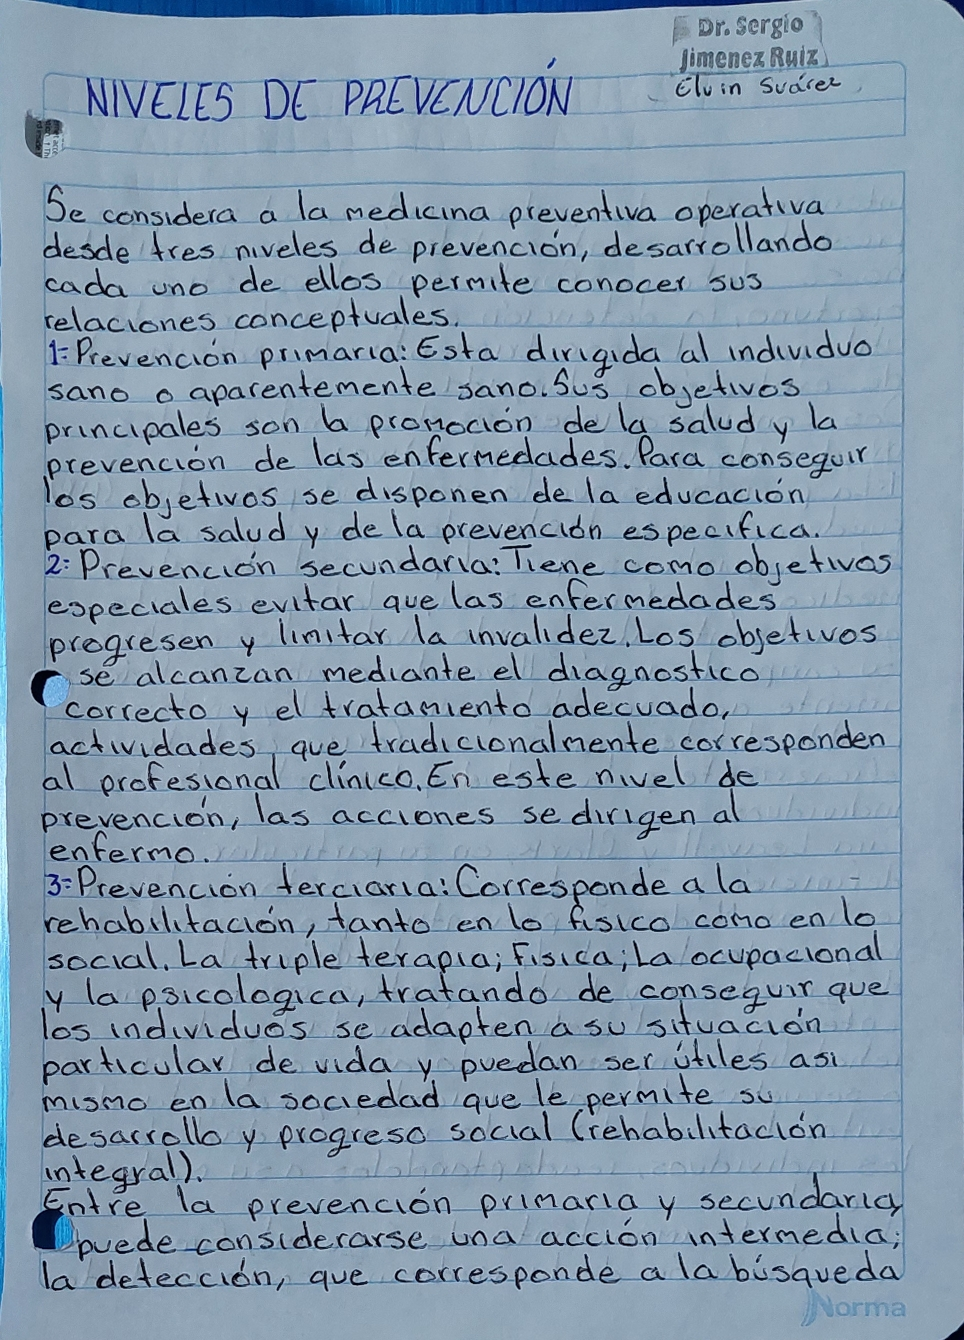 Dr. Sergio
Jimenez Ruiz
Elvin Suárez
NIVELES DE PREVENCIÓN
Se considera a la medicina preventiva operativa
desde tres niveles de prevención, desarrollando
cada uno de ellos permite conocer sus
relaciones conceptuales.
1- Prevención primaria: Esta dirigida al individuo
sano o aparentemente sano. Sus objetivos
principales son la promoción de la salud y la
prevención de las enfermedades. Para conseguir
los objetivos se disponen de la educación
para la salud y de la prevención especifica.
2- Prevención secundaria: Tiene como objetivos
especiales evitar que las enfermedades
progresen y limitar la invalidez. Los objetivos
se alcanzan mediante el diagnostico
correcto y el tratamiento adecuado,
actividades que tradicionalmente corresponden
al profesional clínico. En este nivel de
prevención, las acciones se dirigen al
enfermo.
3- Prevención terciaria: Corresponde a la
rehabilitación, tanto en lo fisico como en lo
social. La triple terapia; Fisica; La ocupacional
y la psicologica, tratando de conseguir que
los individuos se adapten a su situación
particular de vida y puedan ser útiles asi
mismo en la sociedad que le permite su
desarrollo y progreso social (rehabilitación
integral).
Entre la prevención primaria y secundaria,
puede considerarse una acción intermedia;
la detección, que corresponde a la búsqueda
Norma